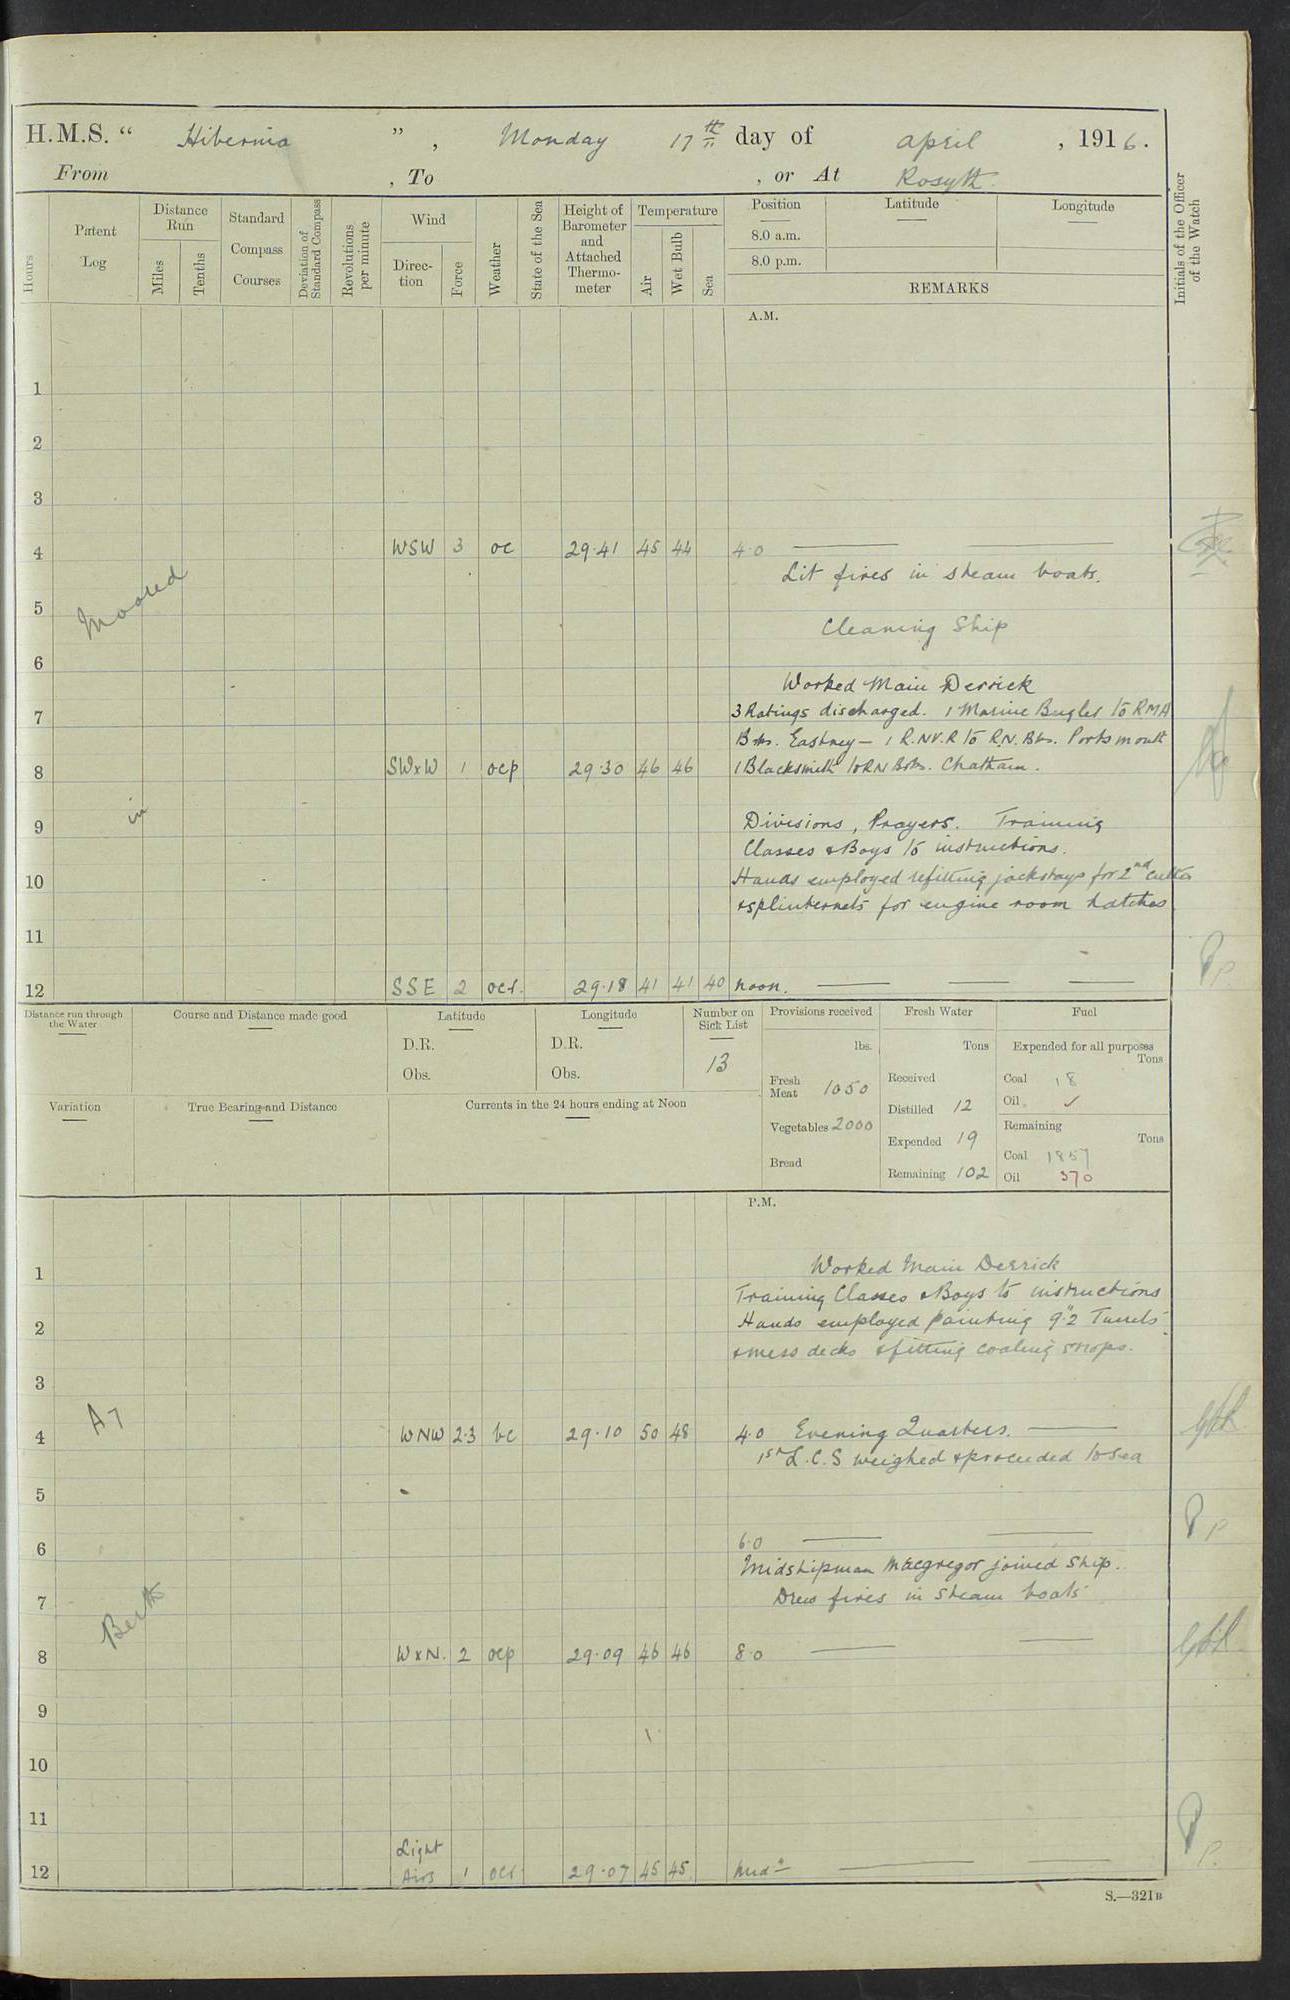 H.M.S. “ Hibernia ”, Monday 17th day of April, 1916.
From , To , or At Rosyth.
Hours
Patent Log
Distance Run
Miles
Tenths
Standard Compass Courses
Deviation of Standard Compass
Revolutions per minute
Wind
Direction
Force
Weather
State of the Sea
Height of Barometer and Attached Thermometer
Temperature
Air
Wet Bulb
Sea
Position
Latitude
Longitude
8.0 a.m.
8.0 p.m.
REMARKS
Initials of the Officer of the Watch
A.M.
1
2
3
4 WSW 3 oc 29.41 45 44 4.0
Lit fires in steam boats.
Moored
5
Cleaning Ship
6
Worked Main Derrick
3 Ratings discharged. 1 Marine Bugler to RMA
7
Bks. Eastney – 1 R.N.V.R to R.N. Bks. Portsmouth
8 SWxW 1 ocp 29.30 46 46 1 Blacksmith to RN Bks. Chatham.
in
9 Divisions, Prayers. Training
Classes & Boys to instructions.
10 Hands employed refitting jackstays for 2nd cutter
& splinternets for engine room hatches
11
12 SSE 2 ocr. 29.18 41 41 40 noon.
Distance run through the Water
Course and Distance made good
Latitude
D.R.
Obs.
Longitude
D.R.
Obs.
Number on Sick List
13
Provisions received
lbs.
Fresh Meat 1050
Vegetables 2000
Bread
Fresh Water
Tons
Received
Distilled 12
Expended 19
Remaining 102
Fuel
Expended for all purposes
Tons
Coal 18
Oil ✓
Remaining
Tons
Coal 1857
Oil 370
Variation
True Bearing and Distance
Currents in the 24 hours ending at Noon
P.M.
1 Worked Main Derrick
Training Classes & Boys to instructions
2 Hands employed painting 9"2 Turrets
& mess decks & fitting coaling strops.
3
At
4 WNW 2.3 bc 29.10 50 48 4.0 Evening Quarters.
1st L.C.S weighed & proceeded to sea
5
6 6.0
Midshipman Macgregor joined ship.
7 Drew fires in steam boats
Berth
8 WxN. 2 ocp 29.09 46 46 8.0
9
10
11
12 Light Airs 1 ocr 29.07 45 45 Midt
S.—321B